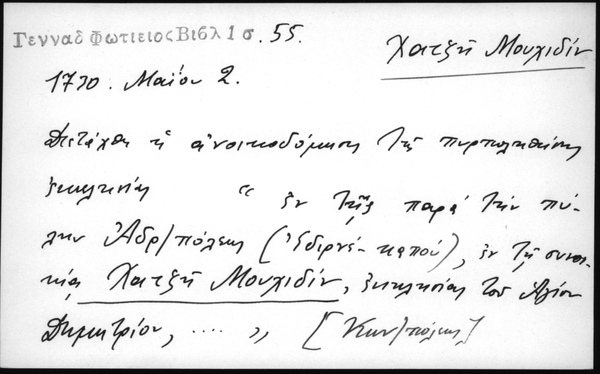 Γενναδ Φωτιειος Βιβλ 1 σ. 55.
Χατζῆ Μουχιδίν
1730. Μαΐου 2.
Διετάχθη ἡ ἀνοικοδόμησις τῆς πυρποληθείσης
ἐκκλησίας “ ἐν τῆς παρά τήν πύ-
λην Ἀδρ/πόλεως (Ἐδιρνέ-καπού), ἐν τῇ συνοι-
κίᾳ Χατζῆ Μουχιδίν, ἐκκλησίας τοῦ Ἁγίου
Δημητρίου, .... „ [Κων/πόλεως]